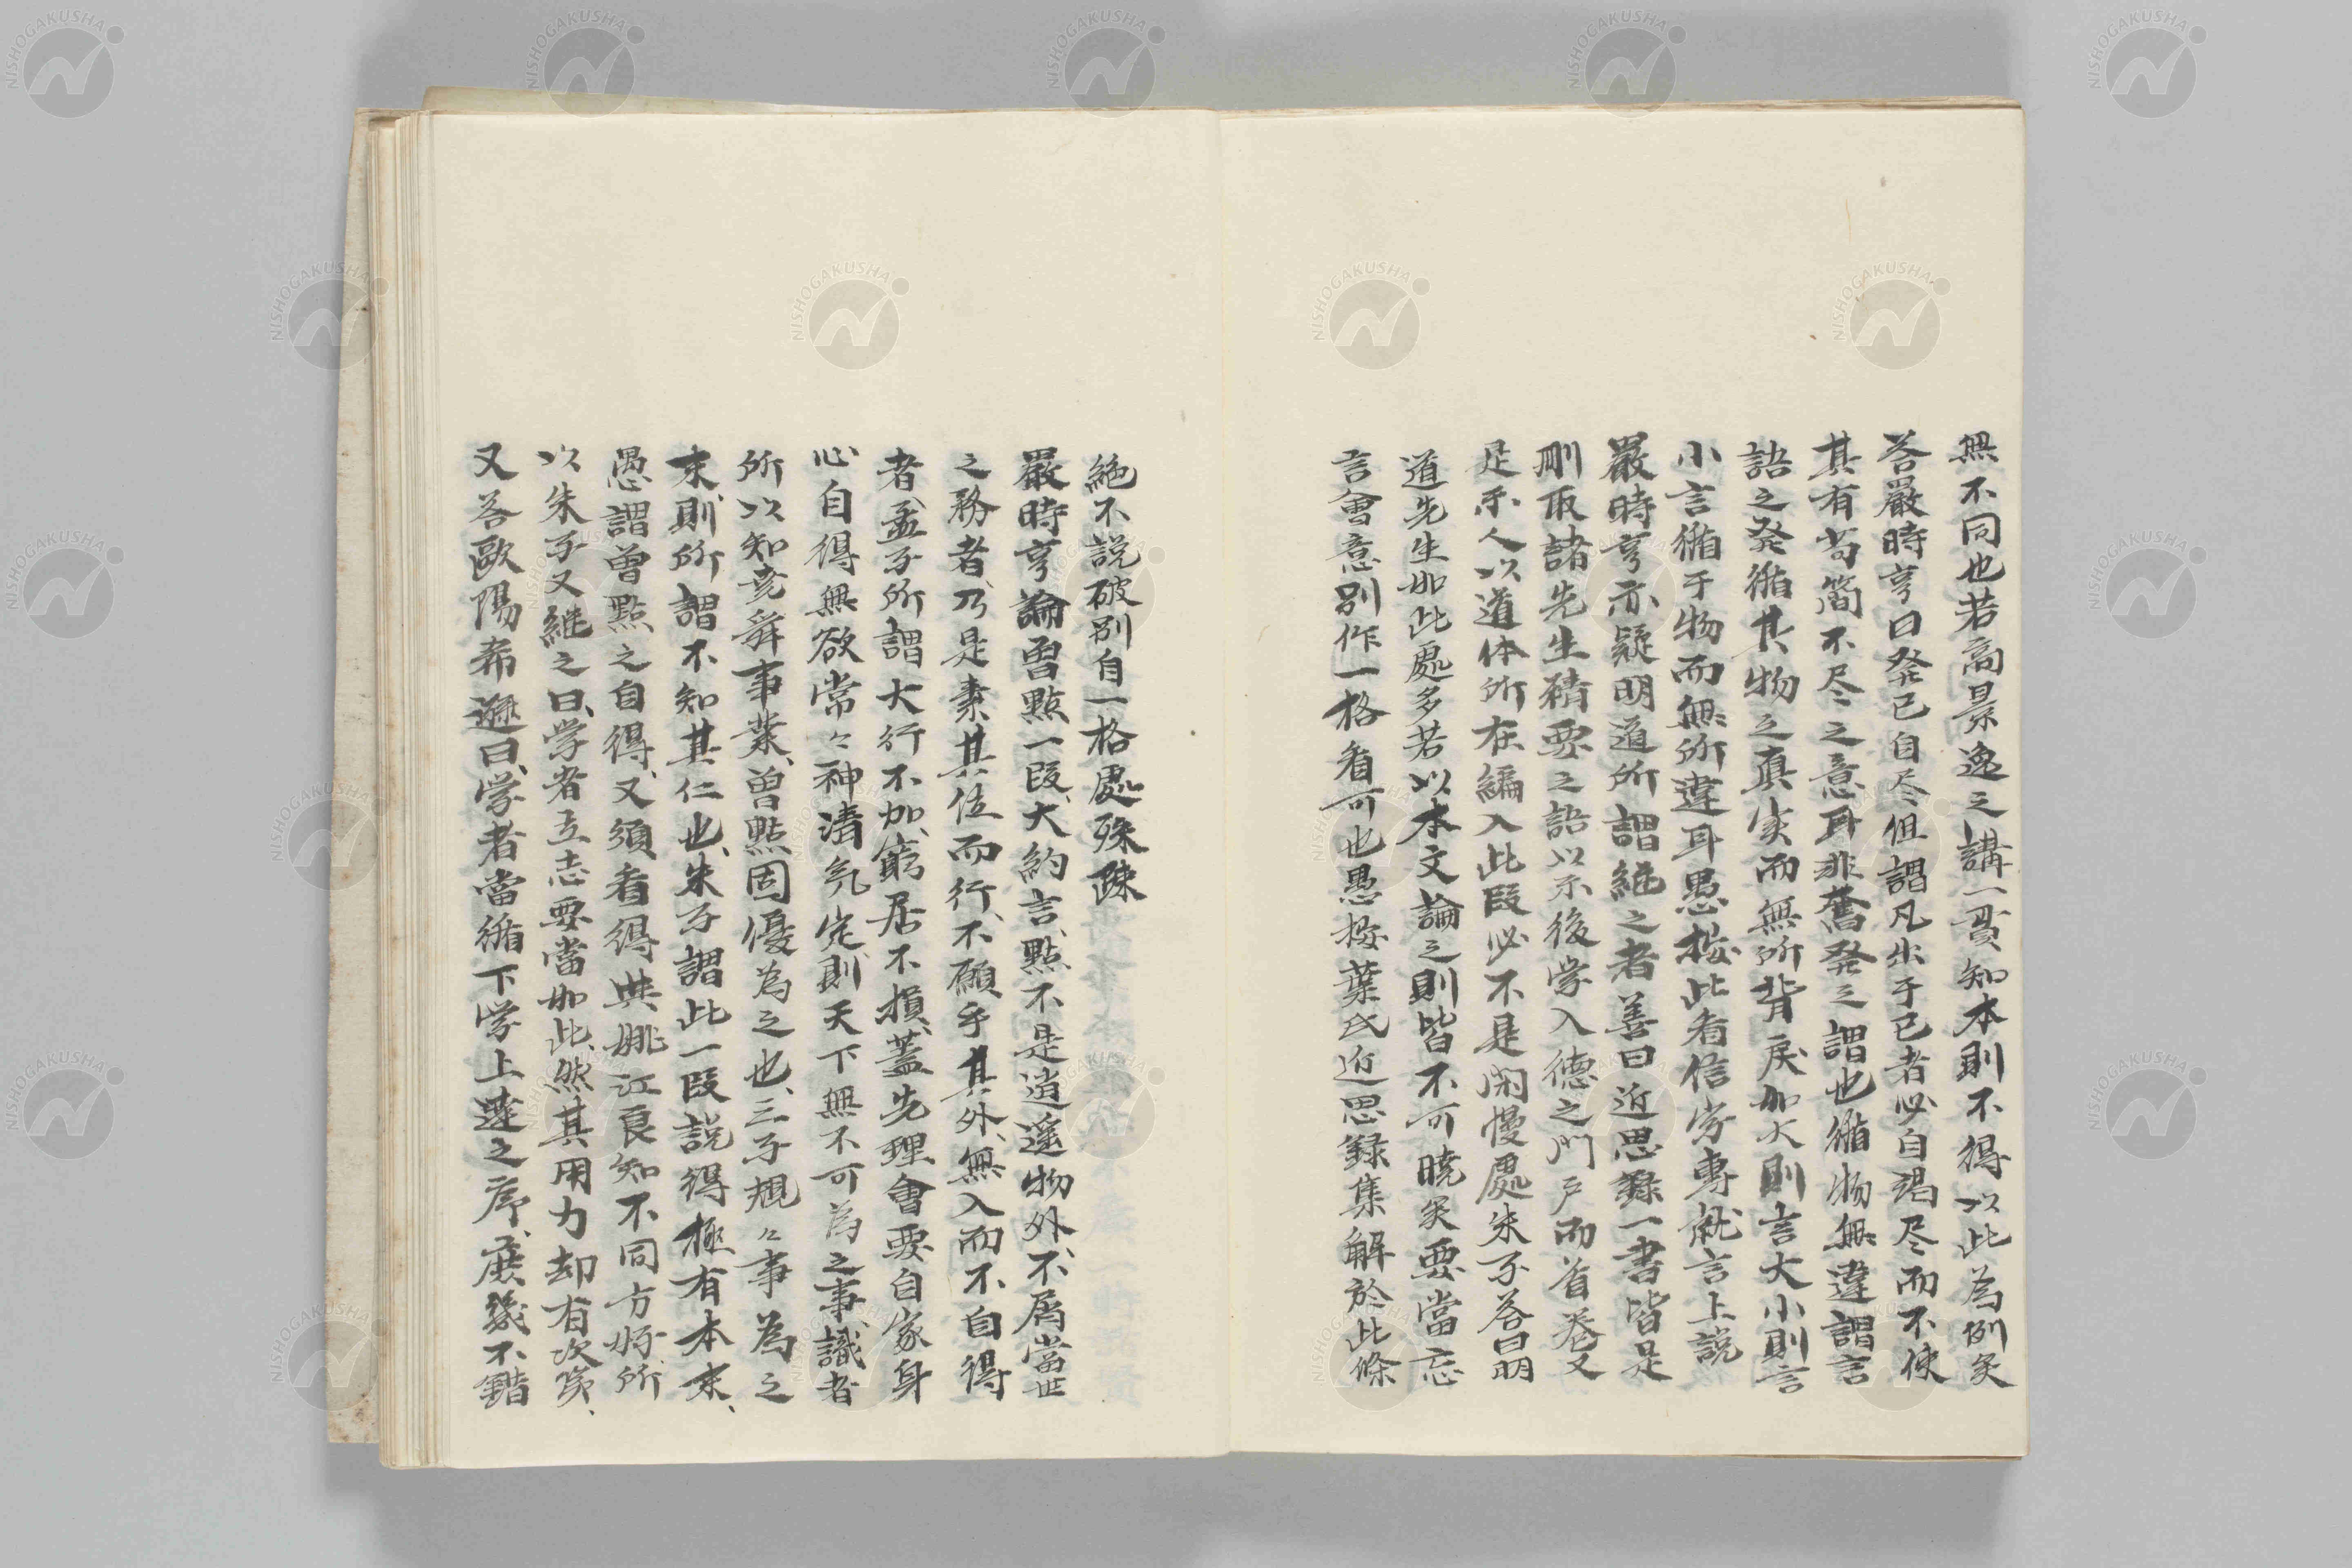 無不同也若高景逸之講一貫知本則不得以此為例矣
答嚴時亨曰発己自尽但謂凡出于己者必自竭尽而不使
其有苟簡不尽之意耳非奮発之謂也循物無違謂言
語之発循其物之真実而無所背戻如大則言大小則言
小言循于物而無所違耳愚按此看信字専就言上説
嚴時亨亦疑明道所謂絶之者善曰近思録一書皆是
刪取諸先生精要之語以示後学入徳之門戸而首巻又
是示人以道体所在編入此段必不是閑慢處朱子答曰明
道先生如此處多若以本文論之則皆不可曉矣要當忘
言會意別作一格看可也愚按葉氏近思録集解於此條
絶不説破別自一格處殊疎
嚴時亨論曽點一段、大約言、點不是逍遥物外、不屑當世
之務者、乃是素其位而行、不願乎其外、無入而不自得
者、孟子所謂大行不加、窮居不損、蓋先理會要自家身
心自得無欲常々神清気定、則天下無不可為之事、識者
所以知尭舜事業、曽點固優為之也、三子規々事為之
末、則所謂不知其仁也、朱子謂此一段説得極有本末、
愚謂曽點之自得、又須看得與姚江良知不同方好所
以朱子又継之曰、学者立志要當如此、然其用力却有次第、
又答歐陽希遜曰、学者當循下学上達之序、庶幾不錯